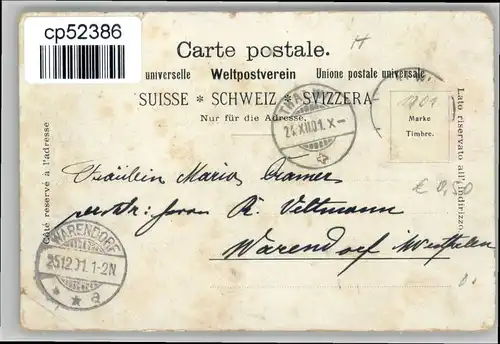 cp52386
Carte postale. H
universelle Weltpostverein Unione postale universale
SUISSE * SCHWEIZ * SVIZZERA
Nur für die Adresse.
24.XII.01. X-
1901
Marke
Timbre.
Côté réservé à l'adresse
Lato riservato all'indirizzo.
Fräulein Maria Cramer
€ 0,20
Herrn R. Veltmann
Warendorf i/Westfalen
WARENDORF
25.12.01. 1-2N
* * a